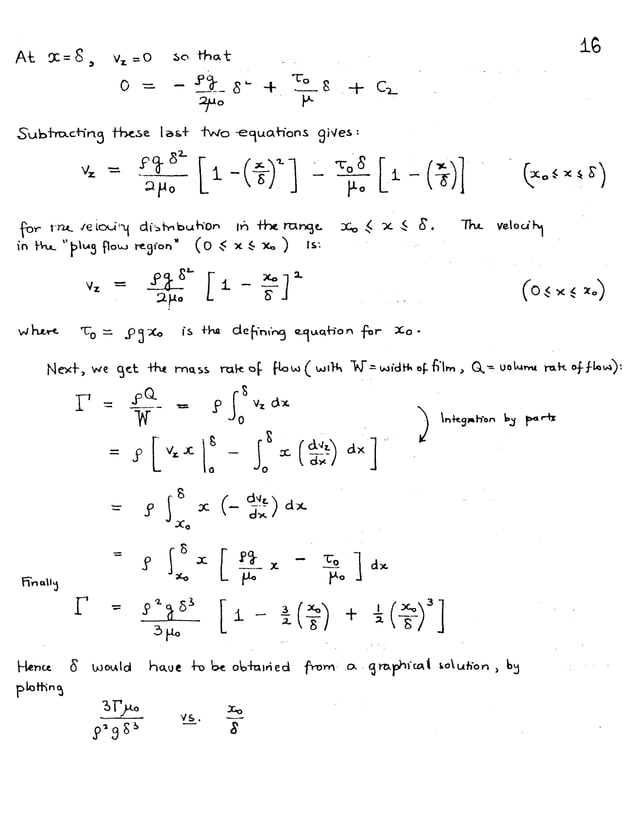 16
At x = δ, v_z = 0 so that
0 = - ρg/2μ₀ δ² + τ₀/μ δ + C₂
Subtracting these last two equations gives:
v_z = ρgδ²/2μ₀ [1 - (x/δ)²] - τ₀δ/μ₀ [1 - (x/δ)] (x₀ ≤ x ≤ δ)
for the velocity distribution in the range x₀ ≤ x ≤ δ. The velocity
in the "plug flow region" (0 ≤ x ≤ x₀) is:
v_z = ρgδ²/2μ₀ [1 - x₀/δ]² (0 ≤ x ≤ x₀)
where τ₀ = ρgx₀ is the defining equation for x₀.
Next, we get the mass rate of flow (with W = width of film, Q = volume rate of flow):
Γ = ρQ/W = ρ ∫₀^δ v_z dx
Integration by parts
= ρ [v_z x |₀^δ - ∫₀^δ x (dv_z/dx) dx]
= ρ ∫_{x₀}^δ x (- dv_z/dx) dx
= ρ ∫_{x₀}^δ x [ρg/μ₀ x - τ₀/μ₀] dx
Finally
Γ = ρ²gδ³/3μ₀ [1 - 3/2 (x₀/δ) + 1/2 (x₀/δ)³]
Hence δ would have to be obtained from a graphical solution, by
plotting
3Γμ₀/ρ²gδ³ vs. x₀/δ